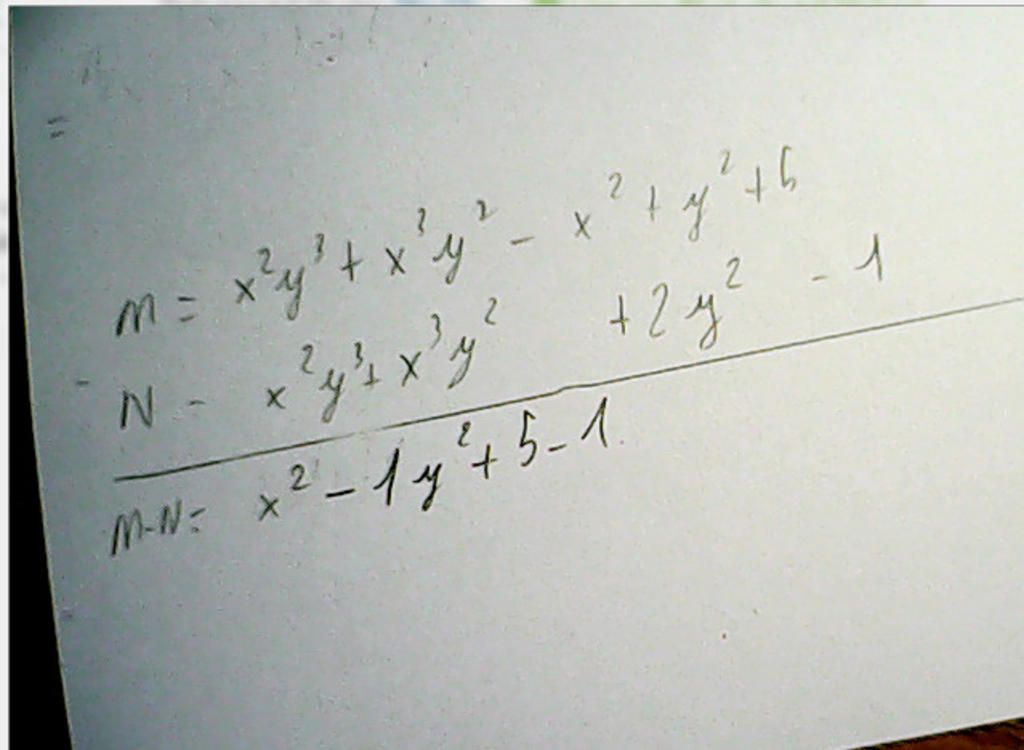 =
M = x²y³ + x³y² - x² + y² + 5
- N - x²y³ + x³y² + 2y² - 1
M-N = x² - 1y² + 5 - 1